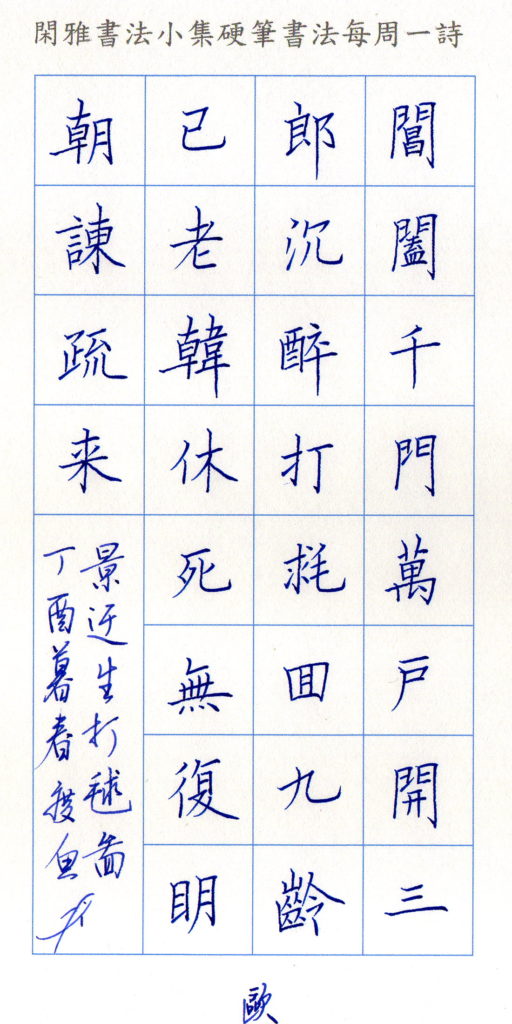 閑雅書法小集硬筆書法每周一詩
閶闔千門萬戶開三
郎沉醉打毬囬九齡
已老韓休死無復眀
朝諫疏来
景迂生打毬圖
丁酉暮春
歐